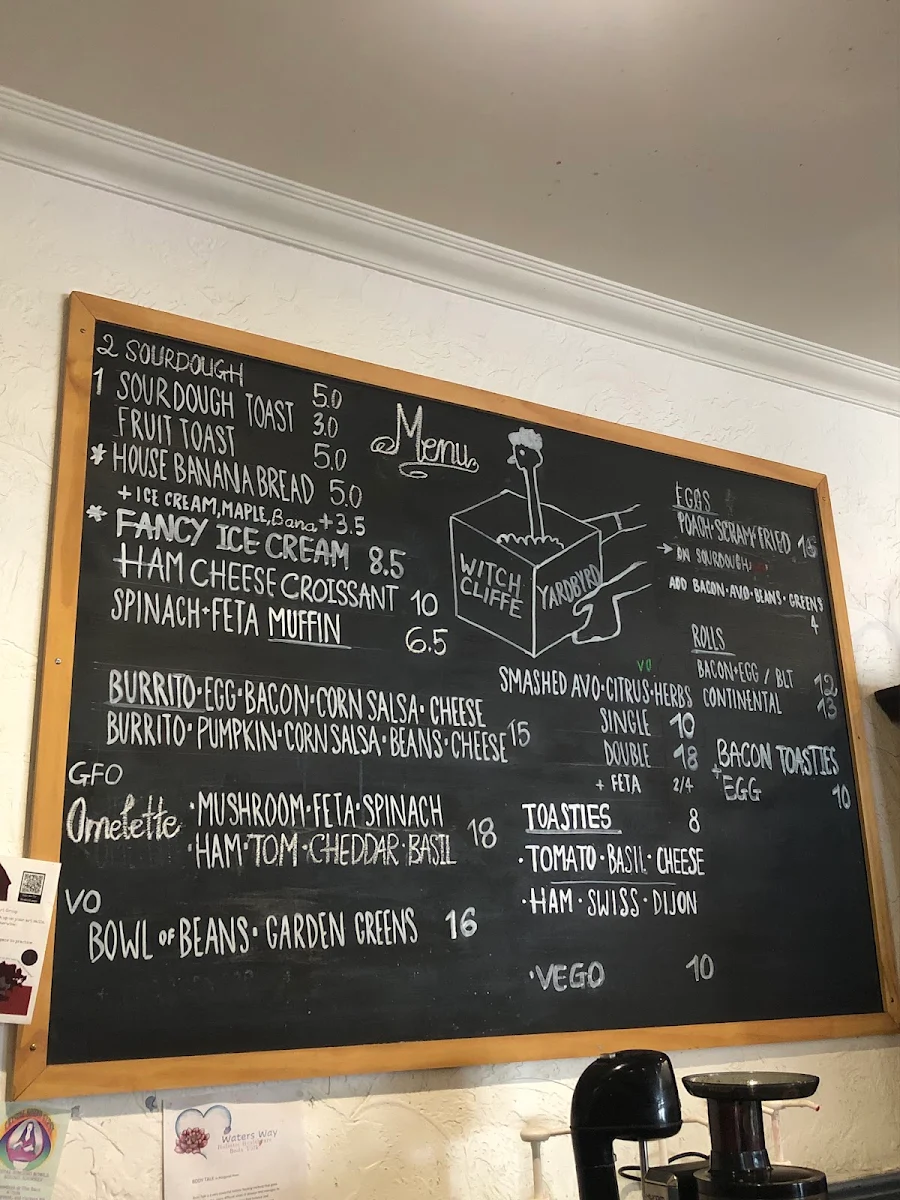 2 SOURDOUGH 5.0
1 SOURDOUGH TOAST 3.0
FRUIT TOAST 5.0
* HOUSE BANANA BREAD 5.0
+ ICE CREAM, MAPLE, Bana +3.5
* FANCY ICE CREAM 8.5
HAM CHEESE CROISSANT 10
SPINACH + FETA MUFFIN 6.5
BURRITO · EGG · BACON · CORN SALSA · CHEESE
BURRITO · PUMPKIN · CORN SALSA · BEANS · CHEESE 15
GFO
Omelette · MUSHROOM · FETA · SPINACH
· HAM · TOM · CHEDDAR · BASIL 18
VO
BOWL OF BEANS · GARDEN GREENS 16
Menu
WITCH
CLIFFE
YARDBYRD
VO
SMASHED AVO · CITRUS · HERBS
SINGLE 10
DOUBLE 18
+ FETA 2/4
TOASTIES 8
· TOMATO · BASIL · CHEESE
· HAM · SWISS · DIJON
· VEGO 10
EGGS
POACH · SCRAM · FRIED
→ ON SOURDOUGH
ADD BACON · AVO · BEANS · GREENS
4
ROLLS
BACON + EGG / BLT 12
CONTINENTAL 13
BACON TOASTIES
+ EGG 10
Waters Way